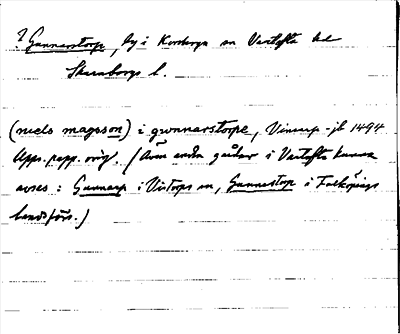 ? Gunnarstorp, by i Korsberga sn Vartofta hd
Skaraborgs l.
(niels magsson) i gwnnarstorpe, Vinarp - jb 1494
Upps. papp. orig. (Även andra gårdar i Vartofta kunna
avses: Gunnarp i Vistorps sn, Gunnestorp i Falköpings
landsförs.)